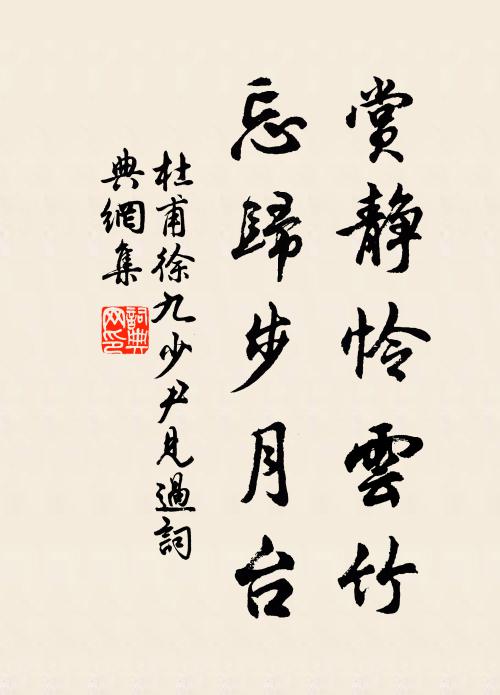 賞靜怜雲竹
忘歸步月台
杜甫徐九少尹見過詞
典網集
詞典
网印